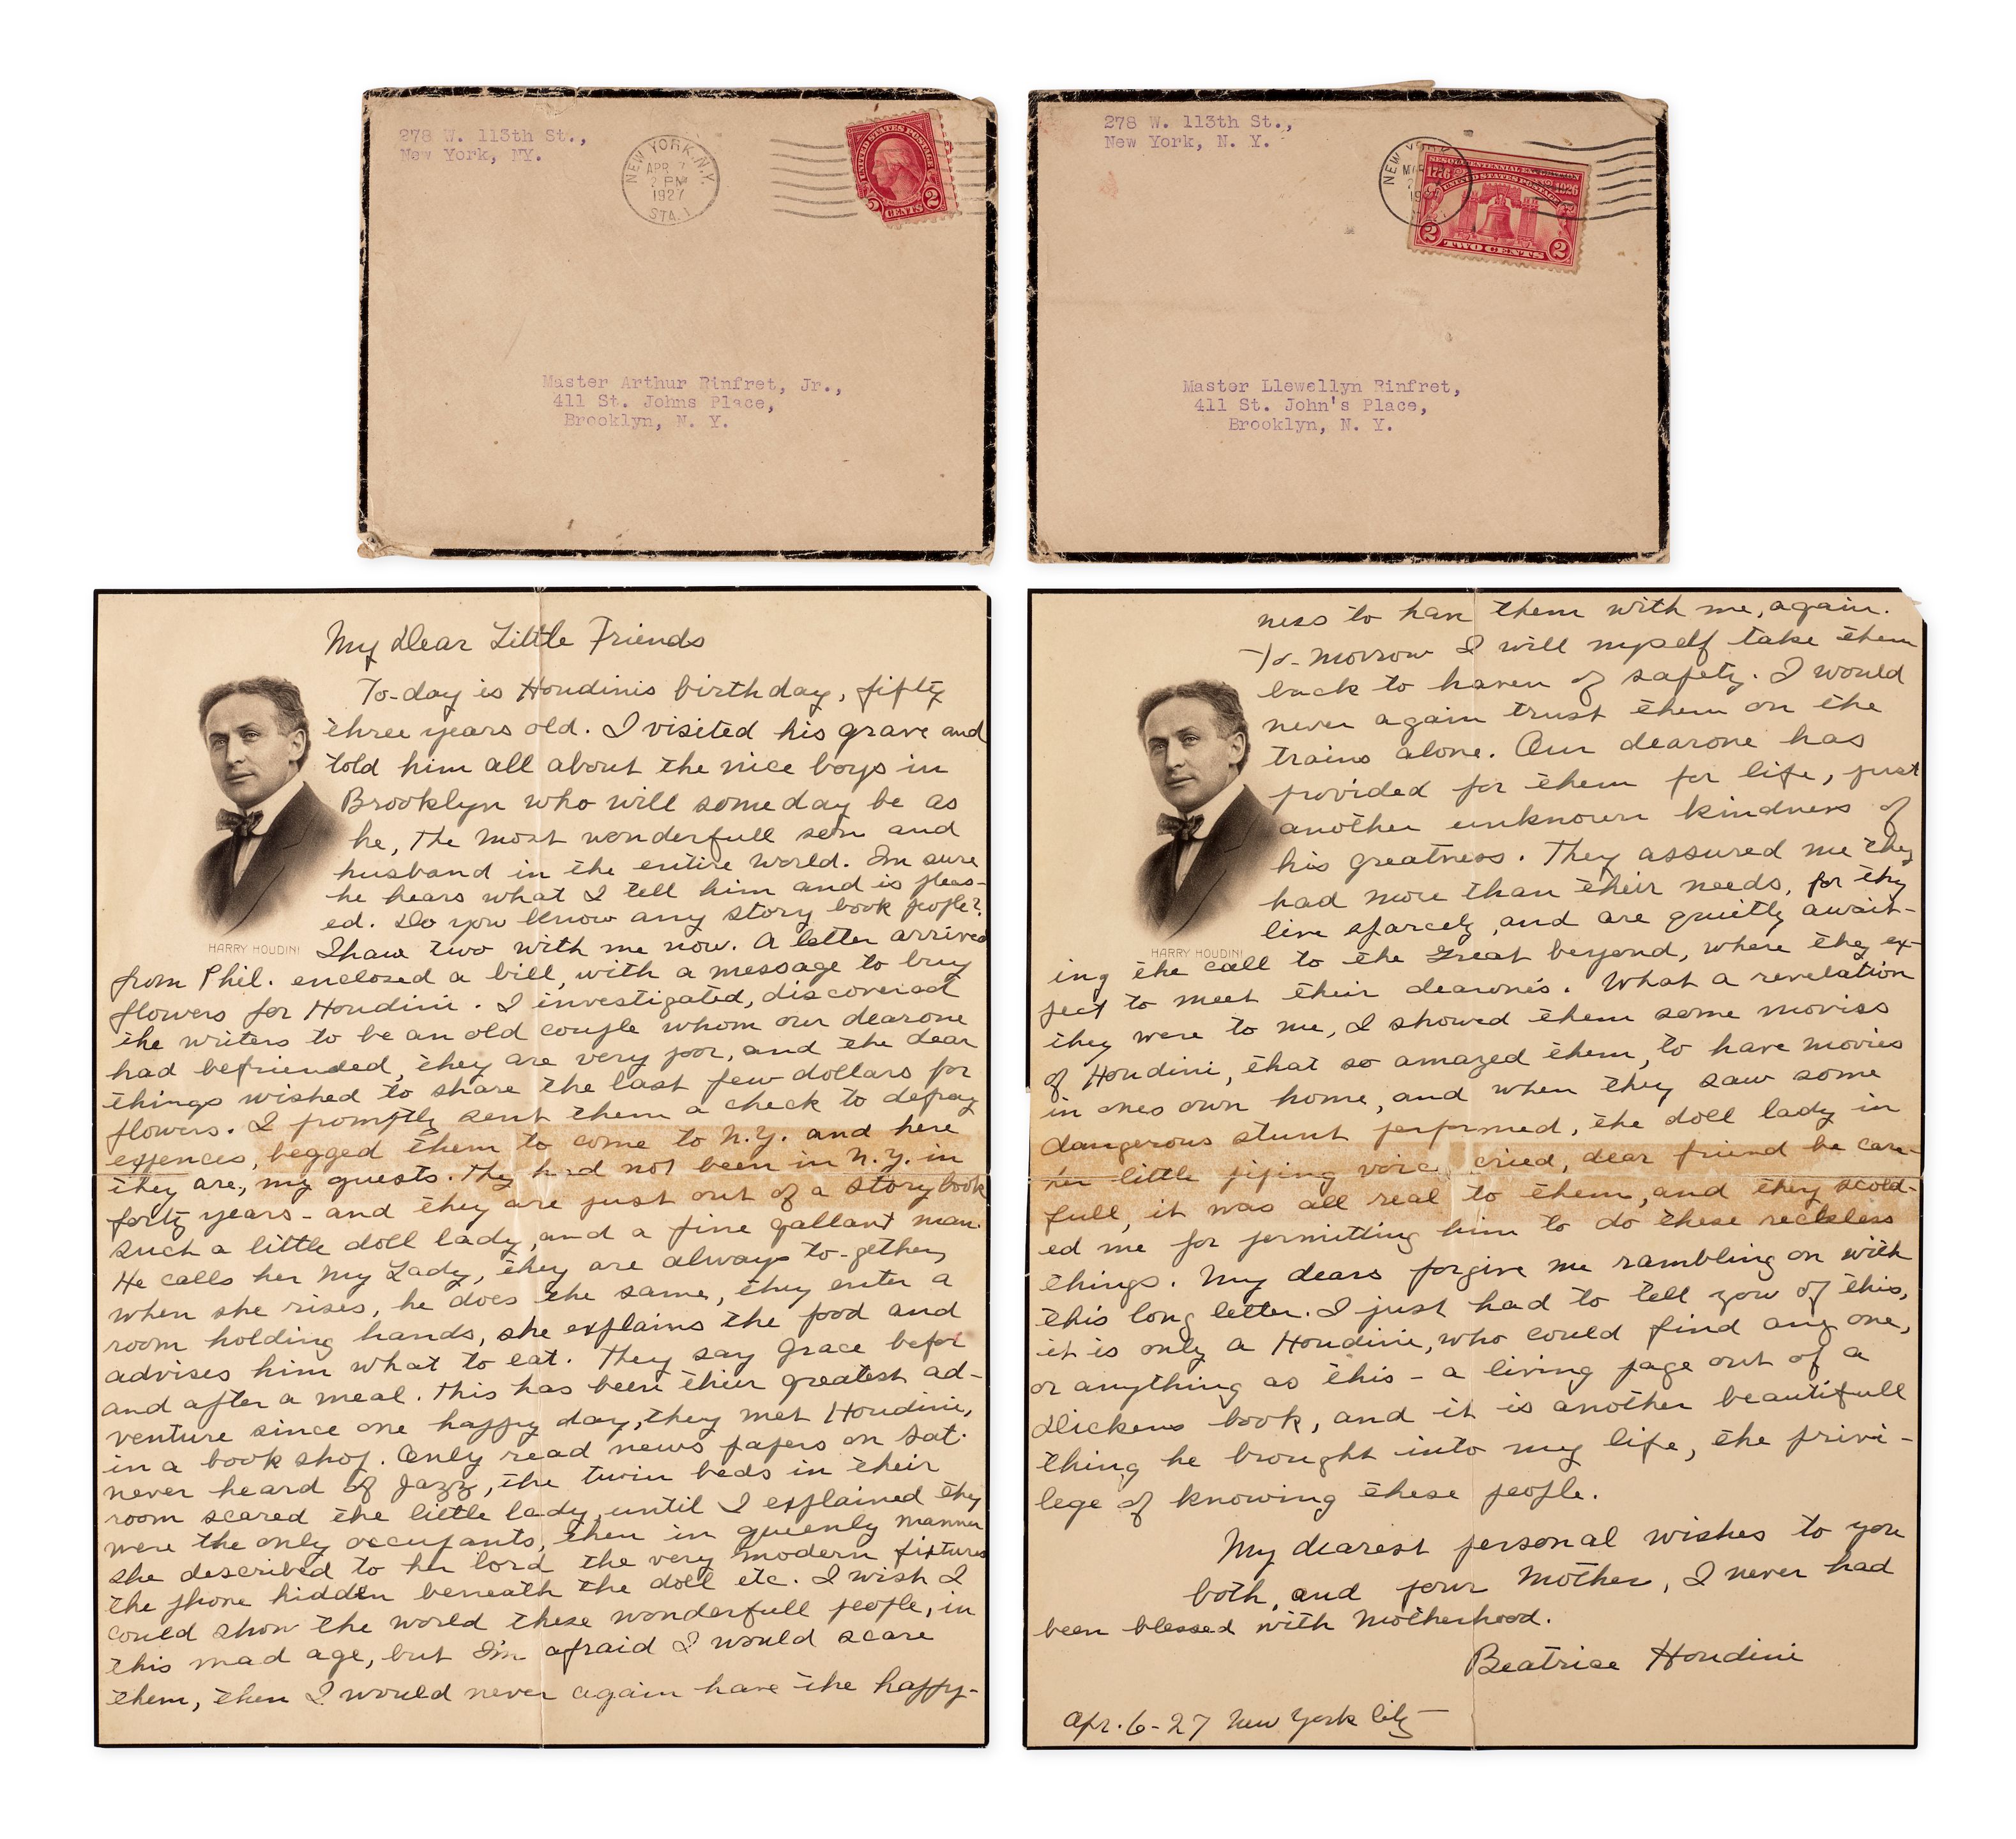 278 W. 113th St.,
New York, NY.
NEW YORK, N.Y.
APR 7
2 PM
1927
STA. I
UNITED STATES POSTAGE
2
CENTS 2
Master Arthur Rinfret, Jr.,
411 St. Johns Place,
Brooklyn, N. Y.
278 W. 113th St.,
New York, N. Y.
NEW YORK
SESQUICENTENNIAL EXPOSITION
1776 1926
UNITED STATES POSTAGE
2 TWO CENTS 2
Master Llewellyn Rinfret,
411 St. John's Place,
Brooklyn, N. Y.
My Dear Little Friends
To-day is Houdinis birthday, fifty
three years old. I visited his grave and
told him all about the nice boys in
Brooklyn who will someday be as
he, the most wonderfull son and
husband in the entire world. Im sure
he hears what I tell him and is pleas-
ed. Do you know any story book people?
I have two with me now. A letter arrived
HARRY HOUDINI
from Phil. enclosed a bill, with a message to buy
flowers for Houdini. I investigated, discovered
the writers to be an old couple whom our dearone
had befriended, they are very poor, and the dear
things wished to share the last few dollars for
flowers. I promptly sent them a check to defray
expences, begged them to come to N.Y. and here
they are, my guests. They had not been in N.Y. in
forty years - and they are just out of a story book
such a little doll lady, and a fine gallant man.
He calls her My Lady, they are always to-gether,
when she rises, he does the same, they enter a
room holding hands, she explains the food and
advises him what to eat. They say Grace befor
and after a meal. This has been their greatest ad-
venture since one happy day, they met Houdini,
in a book shop. Only read news papers on Sat.
never heard of Jazz, the twin beds in their
room scared the little lady, until I explained they
were the only occupants, then in queenly manner
she described to her lord the very modern fixtures
the phone hidden beneath the doll etc. I wish I
could show the world these wonderfull people, in
this mad age, but Im afraid I would scare
them, then I would never again have the happy-
ness to have them with me, again.
To-morrow I will myself take them
back to haven of safety. I would
never again trust them on the
trains alone. Our dearone has
provided for them for life, just
another unknown kindness of
his greatness. They assured me they
had more than their needs, for they
live sparcely, and are quietly await-
HARRY HOUDINI
ing the call to the Great beyond, where they ex-
pect to meet their dearones. What a revelation
they were to me, I showed them some movies
of Houdini, that so amazed them, to have movies
in ones own home, and when they saw some
dangerous stunt performed, the doll lady in
her little piping voice cried, dear friend be care-
full, it was all real to them, and they scold-
ed me for permitting him to do these reckless
things. My dears forgive me rambling on with
this long letter. I just had to tell you of this,
it is only a Houdini, who could find any one,
or anything as this - a living page out of a
Dickens book, and it is another beautifull
thing he brought into my life, the privi-
lege of knowing these people.
My dearest personal wishes to you
both, and your Mother, I never had
been blessed with Motherhood.
Beatrice Houdini
Apr. 6-27 New York City